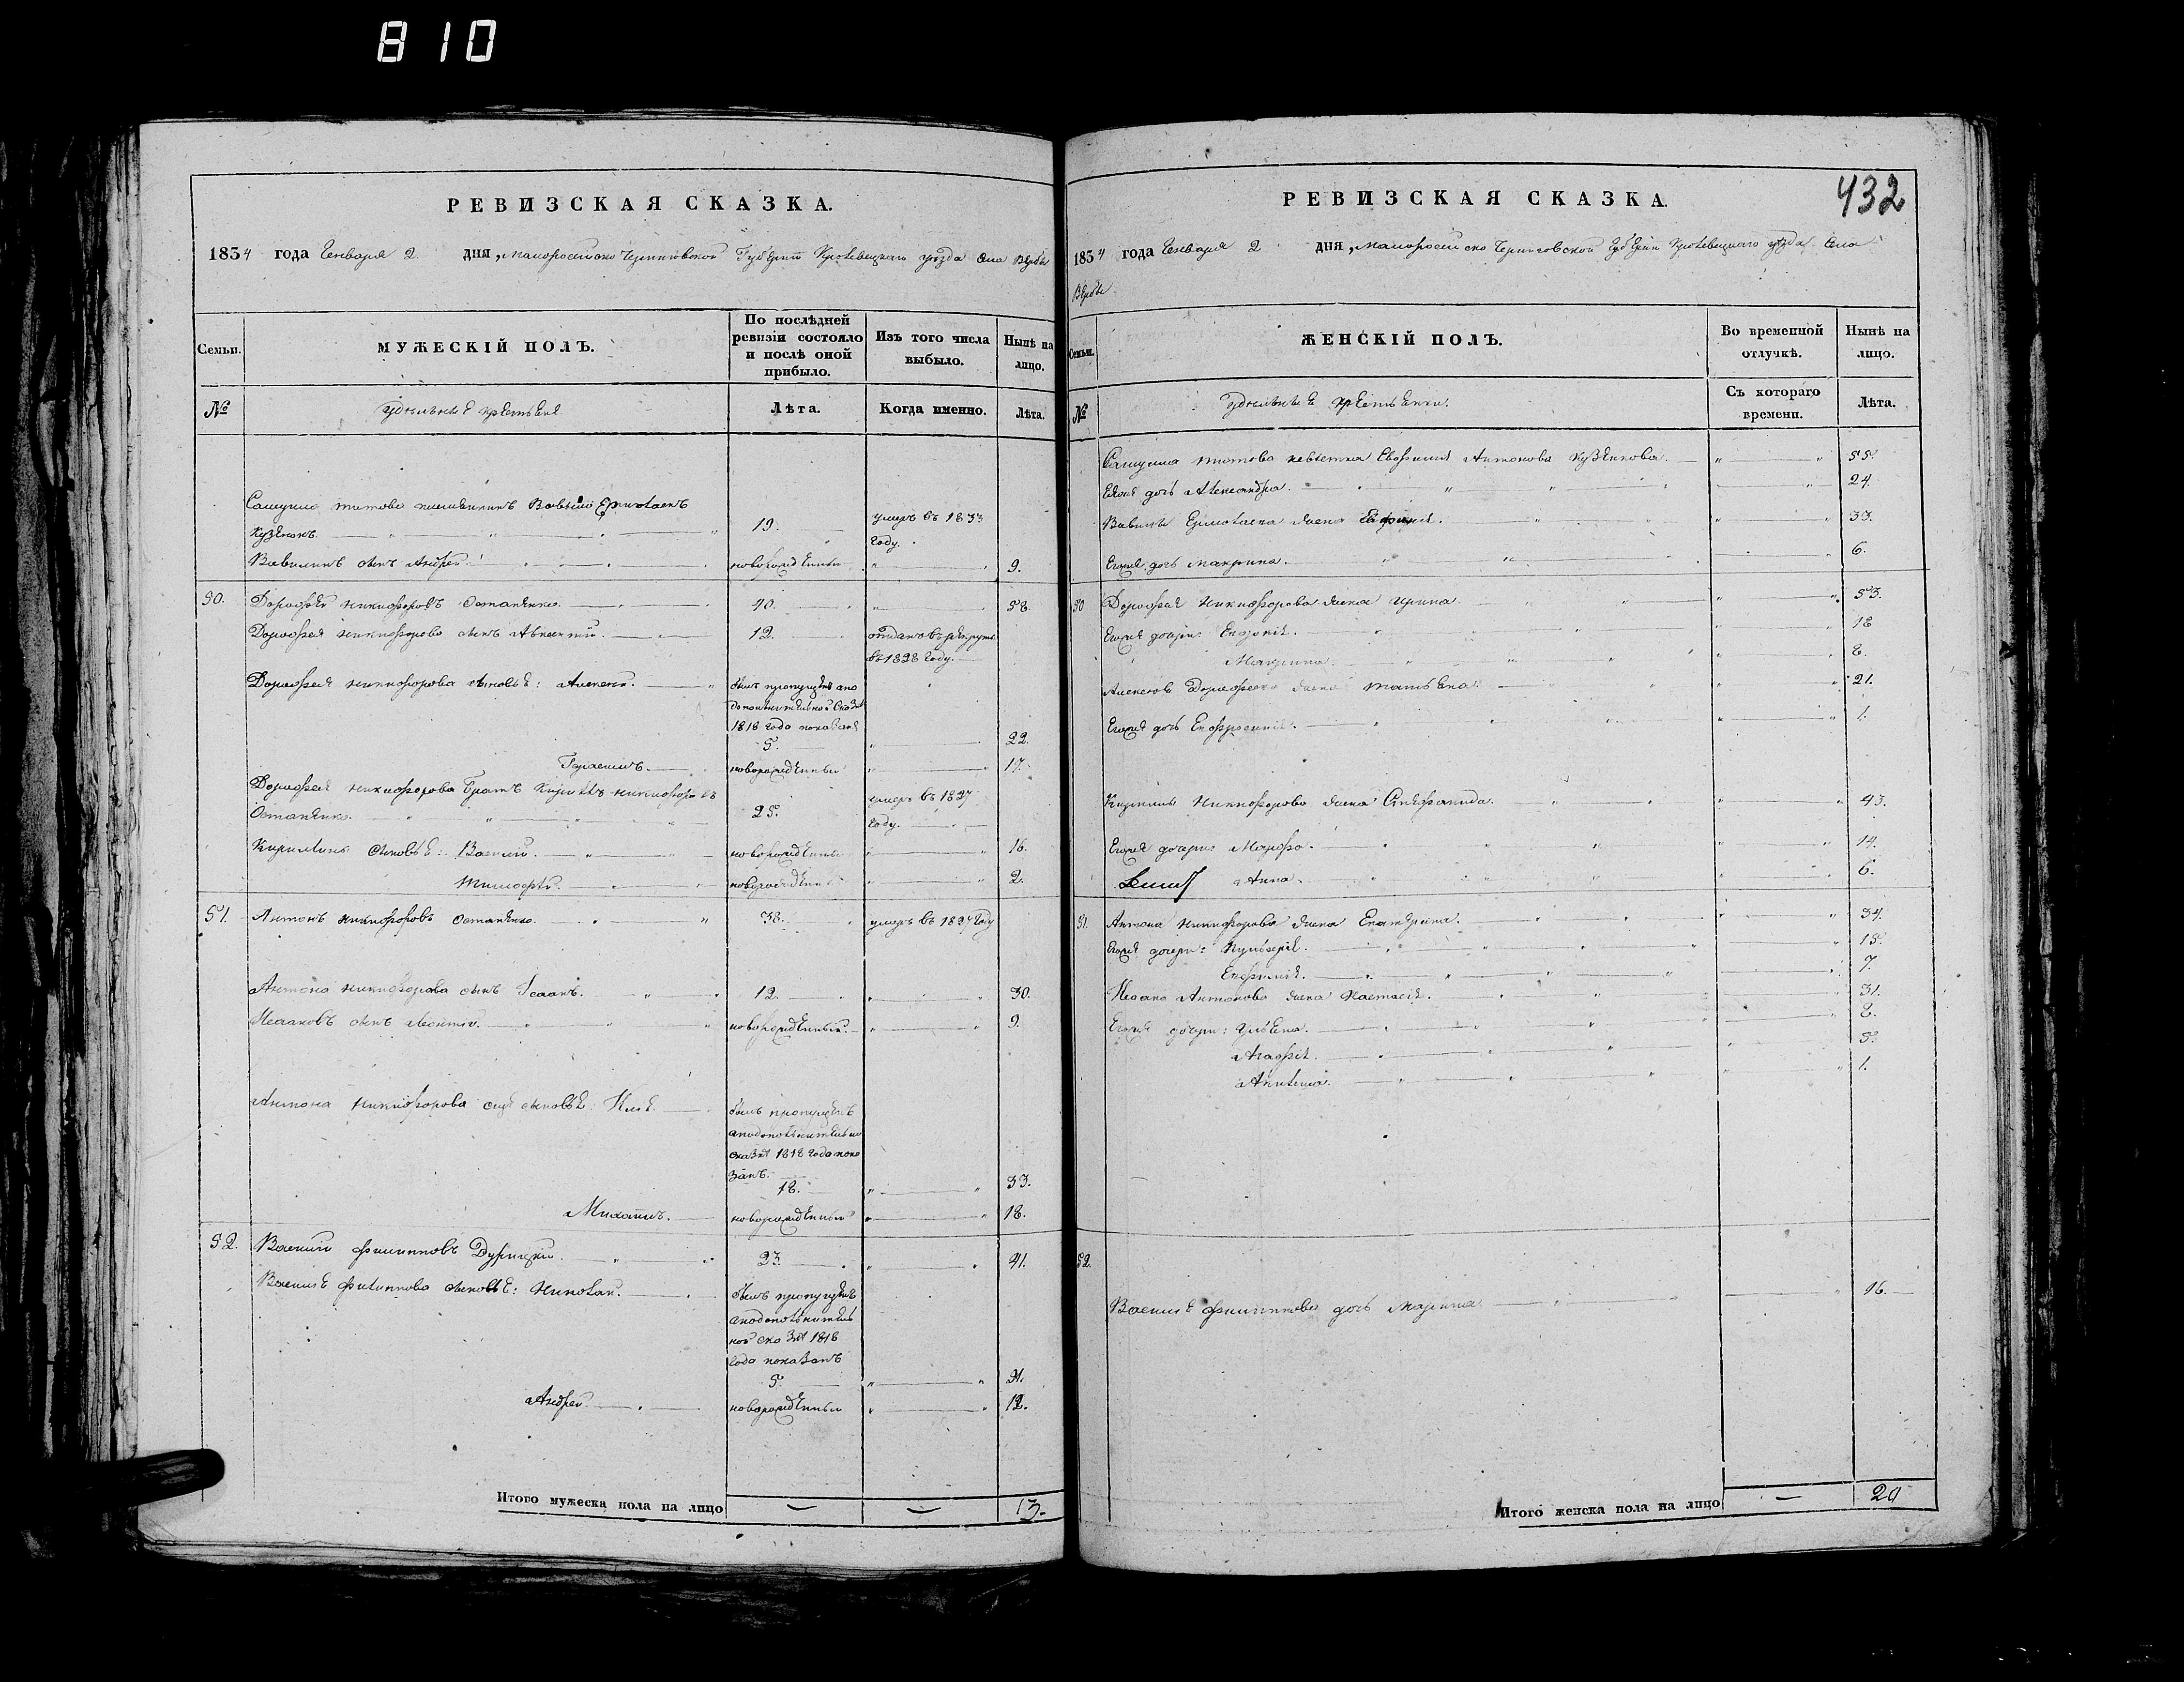 810
РЕВИЗСКАЯ СКАЗКА.
1834 года Генваря 2 дня, малоросійско Черниговской Губерніи Кролевецкаго уѣзда села Вербы
Семьи.
МУЖЕСКІЙ ПОЛЪ.
По послѣдней ревизіи состояло и послѣ оной прибыло.
Изъ того числа выбыло.
Нынѣ на лицо.
№
удѣльные крестьяне
Лѣта.
Когда именно.
Лѣта.
Самуила титова Ермолаевъ
Кузѣнокъ. 19. умеръ въ 1833
году.
Вавилинъ сынъ Андрей. новорожденный 9.
50. Дорофей никифоровъ Остапѣнко. 40. 58.
Дорофея никифорова сынъ 12. отданъ въ рекруты
въ 1828 году.
Дорофея никифорова сыновьѣ: Алексей. былъ пропущенъ апо
дополнительной сказкѣ
1818 года показанъ
5. 22.
Герасимъ. новорожденный 17.
Дорофея никифорова братъ Кирилъ никифоровъ
Остапѣнко. 25. умеръ въ 1827
году.
Кириловы сыновьѣ: Василий. новорожденный 16.
Тимофей. новорожденный 2.
51. Антонъ никифоровъ Остапѣнко. 38. умеръ въ 1827 году
Антона никифорова сынъ Ісаакъ. 12. 30.
Исааковъ сынъ Леонтій. новорожденный. 9.
Антона никифорова сыновьѣ: Илья. былъ пропущенъ
аподополнительно
сказкѣ 1818 года пока
занъ.
18. 33.
Михаилъ. новорожденный 18.
52. Василий филиповъ 23. 41.
Василія филипова сыновьѣ: Николай. былъ пропущенъ
аподополнитель
ной сказкѣ 1818
года показанъ
5. 21.
Андрей. новорожденный 12.
Итого мужеска пола на лицо — — 13.
432
РЕВИЗСКАЯ СКАЗКА.
1834 года Генваря 2 дня, малоросійско Черниговской Губерніи Кролевецкаго уѣзда села
Вербы
Семьи.
ЖЕНСКІЙ ПОЛЪ.
Во временной отлучкѣ.
Нынѣ на лицо.
№
удѣльные крестьянки.
Съ котораго времени.
Лѣта.
Самуила титова невѣстка Евфимія Антонова Кузѣнкова. 55.
Ёя дочь Александра. 24.
Вавилы Ермолаева жена 33.
дочь Макрина. 6.
50 Дорофея Никифорова жена Ирина. 53.
дочери: Евдокія. 18
Макрина. 8.
Алексѣя Дорофеева жена Татьяна. 21.
дочь Ефросинія. 1.
Кирилы Никифорова жена Степанида. 43.
дочери: Марфа. 14.
Анна. 6.
51. Антона Никифорова жена Екатерина. 34.
дочери: Пульхерія. 15.
Евфимія. 7.
Исаака Антонова жена Настасія. 31.
дочери: Ульяна. 8.
Агафія. 5.
Акилина. 1.
52.
Василія филипова дочь Марина 16.
Итого женска пола на лицо — 20